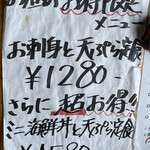 お得な
メニュー
お刺身と天ぷら定食
￥1280-
さらに超お得!!
ミニ海鮮丼と天ぷら定食